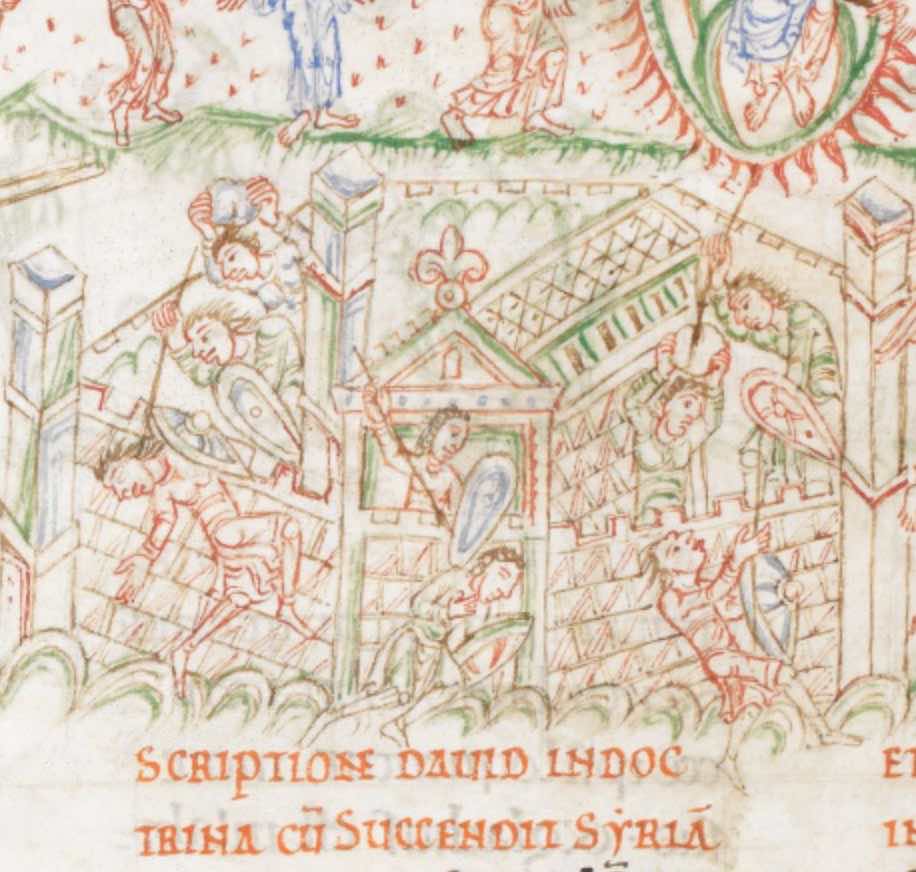 SCRIPTIONE DAUID INDOC ET
TRINA CŪ SUCCENDIT SẎRIĀ